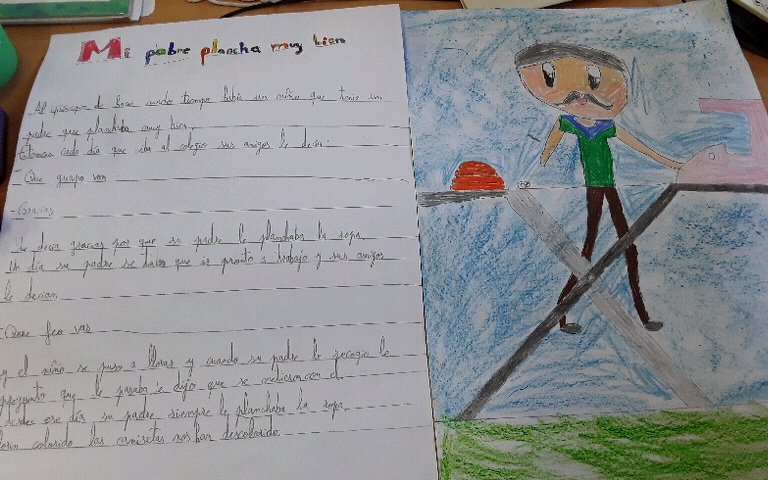 Mi pobre plancha muy bien
Al principio de hace mucho tiempo había un niño que tenia un
padre que planchaba muy bien
Entonces cada día que iba al colegio sus amigos le decian:
-Que guapo vas
-Gracias
Le decia gracias por que su padre le planchaba la ropa
Un día su padre se tuvo que ir pronto a trabajo y sus amigos
le decian
-Que feo vas
y el niño se puso a llorar y cuando su padre lo recogio le
pregunto que le pasaba le dijo que se metieron con el.
desde ese día su padre siempre le planchaba la ropa
colorin colorido las camisetas nos han descolorido